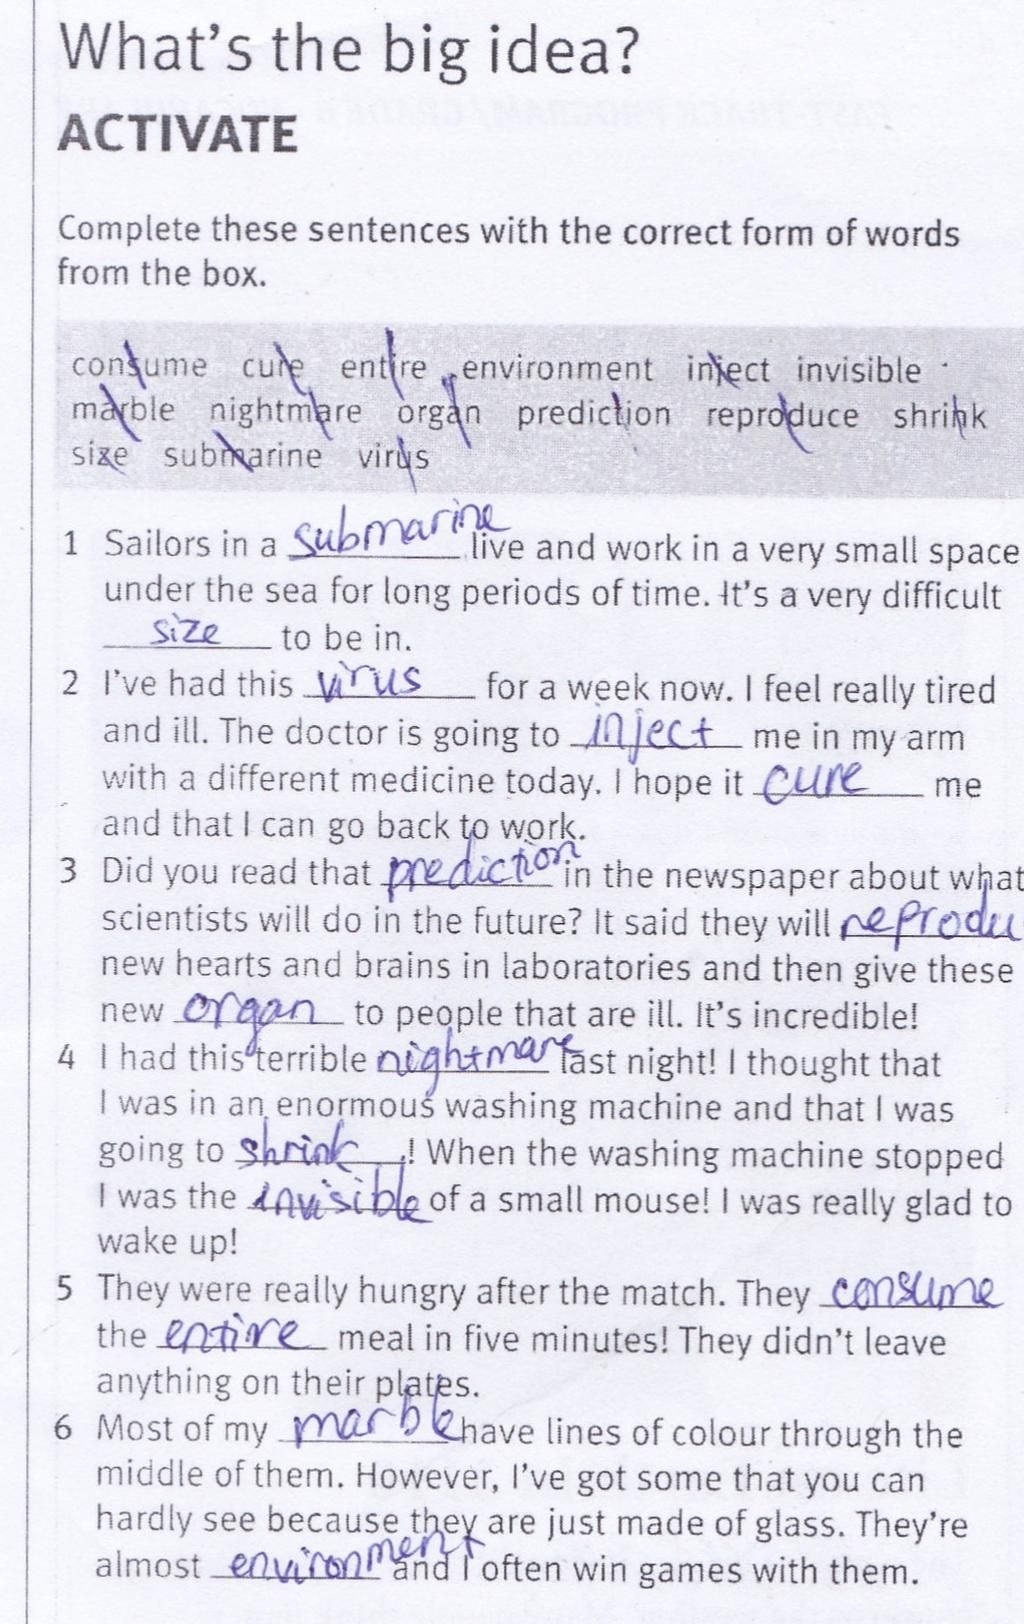 What's the big idea?
ACTIVATE
Complete these sentences with the correct form of words
from the box.
consume cure entire environment inject invisible
marble nightmare organ prediction reproduce shrink
size submarine virus
1 Sailors in a submarine live and work in a very small space
under the sea for long periods of time. It's a very difficult
size to be in.
2 I've had this virus for a week now. I feel really tired
and ill. The doctor is going to inject me in my arm
with a different medicine today. I hope it cure me
and that I can go back to work.
3 Did you read that prediction in the newspaper about what
scientists will do in the future? It said they will reprodu
new hearts and brains in laboratories and then give these
new organ to people that are ill. It's incredible!
4 I had this terrible nightmare last night! I thought that
I was in an enormous washing machine and that I was
going to shrink! When the washing machine stopped
I was the invisible of a small mouse! I was really glad to
wake up!
5 They were really hungry after the match. They consume
the entire meal in five minutes! They didn't leave
anything on their plates.
6 Most of my marble have lines of colour through the
middle of them. However, I've got some that you can
hardly see because they are just made of glass. They're
almost environment and I often win games with them.